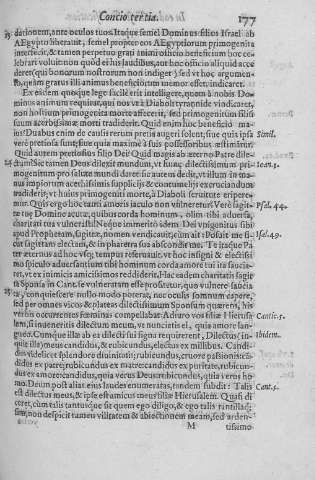 Concio tertia. 177
dationem, ante oculos tuos. Itaque semel Dominus filios Israel ab
AEgypto liberauit, semel propter eos AEgyptiorum primogenita
interfecit, & tamen perpetuo grati animi officio beneficium hoc ce-
lebrari voluit: non quòd ei his laudibus, aut hoc officio aliquid acce-
deret (qui bonorum nostrorum non indiget) sed vt hoc argumen-
to, quàm gratus illi animus beneficiorum memor esset, indicaret.
Ex eadem quoque lege facile erit intelligere, quem à nobis Do-
minus animum requirat, qui nos vt à Diaboli tyrannide vindicaret,
non hostium primogenita morte affecerit, sed primogenitum filiũ
suum acerbissimæ morti tradiderit. Quid enim hoc beneficio ma-
ius? Duabus enim de causis rerum pretia augeri solent, siue quis ipsa Simil.
verè talia sint, siue quia maximè à suis possessoribus æstimentur.
Quid autem pretiosius filio Dei? Quid magis ab æterno Patre dile-
ctum? Sic tamen Deus dilexit mundum, vt hunc dilectissimum pri- Ioan. 3.
mogenitum pro salute mundi daret: sic autem dedit, vt illum in ma-
nus impiorum acerbissimis supplicijs & contumelijs excruciandum
traderet, vt huius primogeniti morte, à Diaboli seruitute eripere-
mur. Quis ergo hoc tanti amoris iaculo non vulneretur? Verè sagit- Psal. 44.
tæ tuæ Domine acutæ, quibus corda hominum, olim tibi aduersa,
charitati tuæ vulnerasti. Neque immeritò idem Dei vnigenitus sibi
apud Prophetam, sagittæ, & pharetræ nomen vendicat: ait: Posuit me si- Isai. 49.
cut sagittam electam, & in pharetra sua abscondit me. Te itaque Pa
ter æternus ad hoc vsque tempus reseruauit, vt hoc insigni & electissi
mo spiculo aduersantium tibi hominum corda amore tui ita saucia-
ret, vt ex inimicis amicissimos redderet. Hac eadem charitatis sagit
ta Sponsa in Cant. se vulneratam esse profitetur, quæ vulnere saucia
ta, conquiescere nullo modo poterat, nec oculis somnum capere,
sed per omnes vicos & plateas dilectissimum Sponsum quærens, his
verbis occurrentes fœminas compellabat. Adiuro vos filiæ Hierusa- Cantic. 5.
lem, si inueneritis dilectum meum, vt nuncietis ei, quia amore lan-
gueo. Cumque illæ ab ea dilecti sui signa requirerent, Dilectus (in- Ibidem.
quit illa) meus candidus, & rubicundus, electus ex millibus. Candi-
dus videlicet splendore diuinitatis; rubicundus, cruore passionis: can
didus ex patre, rubicundus ex matre: candidus ex puritate, rubicun-
dus ex amore: candidus, quia verus Deus, rubicundus, quia verus ho-
mo. Deum post alias eius laudes enumeratas, tandem subdit: Talis Cant. 5.
est dilectus meus, & ipse est amicus meus filiæ Hierusalem. Quasi di
ceret, cùm talis tantusque sit quem ego diligo, & ego talis tantillaque
sim, non despicit tamen vilitatem & abiectionem meam, sed arden-
M tissimo